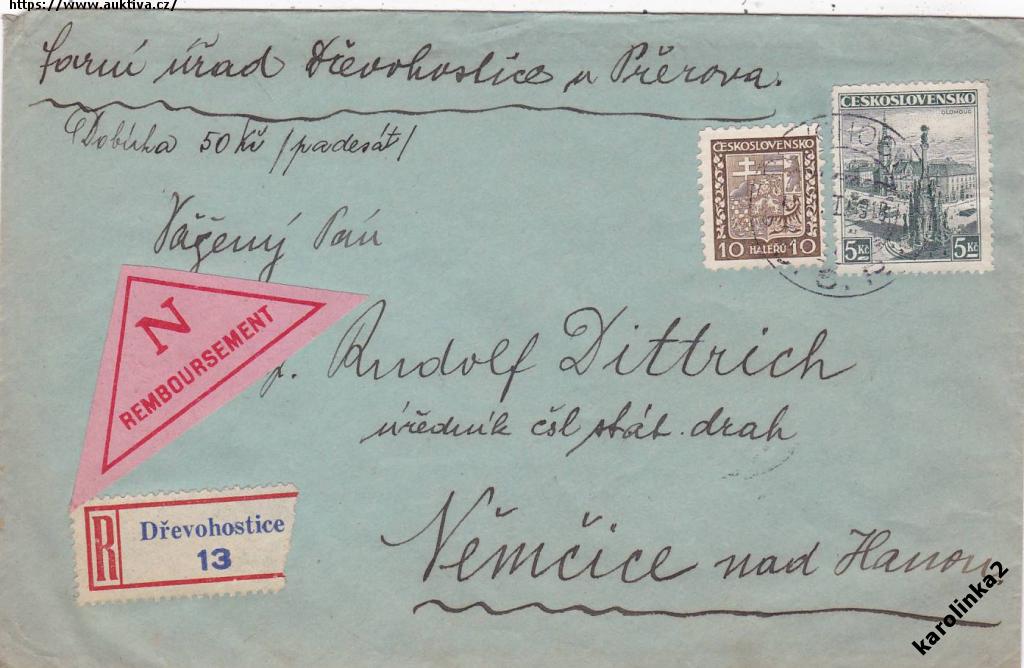 https://www.auktiva.cz/
farní úřad Dřevohostice u Přerova.
Dobírka 50 Kč /padesát/
Vážený Pán
p. Rudolf Dittrich
úředník čsl stát. drah
Němčice nad Hanou
ČESKOSLOVENSKO
10 HALÉŘŮ 10
ČESKOSLOVENSKO
OLOMOUC
5 Kč 5 Kč
N
REMBOURSEMENT
R
Dřevohostice
13
karolinka2